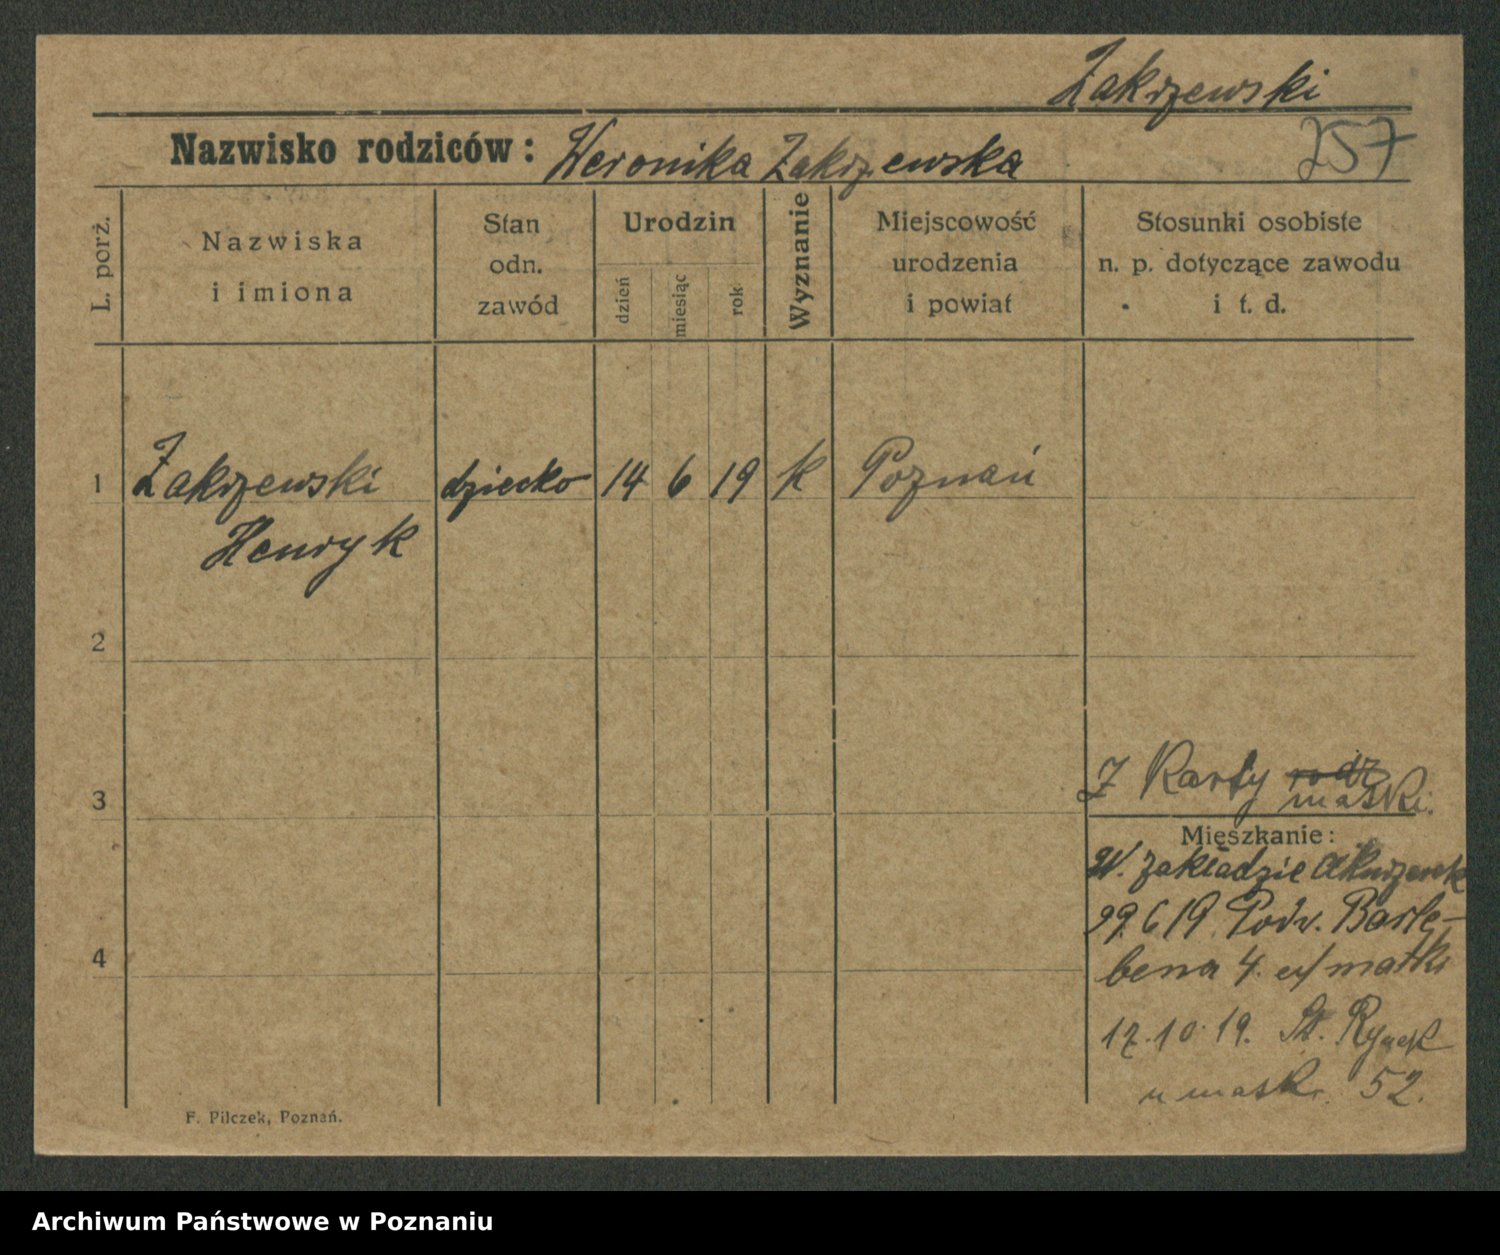 Zakrzewski
Nazwisko rodziców: Weronika Zakrzewska 257
L. porż.
Nazwiska i imiona
Stan odn. zawód
Urodzin
dzień miesiąc rok
Wyznanie
Miejscowość urodzenia i powiat
Stosunki osobiste n. p. dotyczące zawodu i t. d.
1 Zakrzewski dziecko 14 6 19 k Poznań
Henryk
2
3
Z Karty rodz
matki.
Mieszkanie:
W. zakładzie Akuszerek
29.6 19. Podv. Barle-
4
bena 4. matki
17.10.19. St. Rynek
u matki. 52.
F. Pilczek, Poznań.
Archiwum Państwowe w Poznaniu